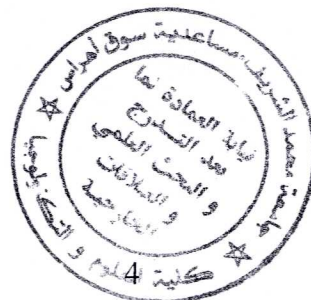 جامعة محمد الشريف مساعدية سوق أهراس
كلية العلوم و التكنولوجيا
نيابة العمادة لما
بعد التدرج
و البحث العلمي
و العلاقات
الخارجية
4